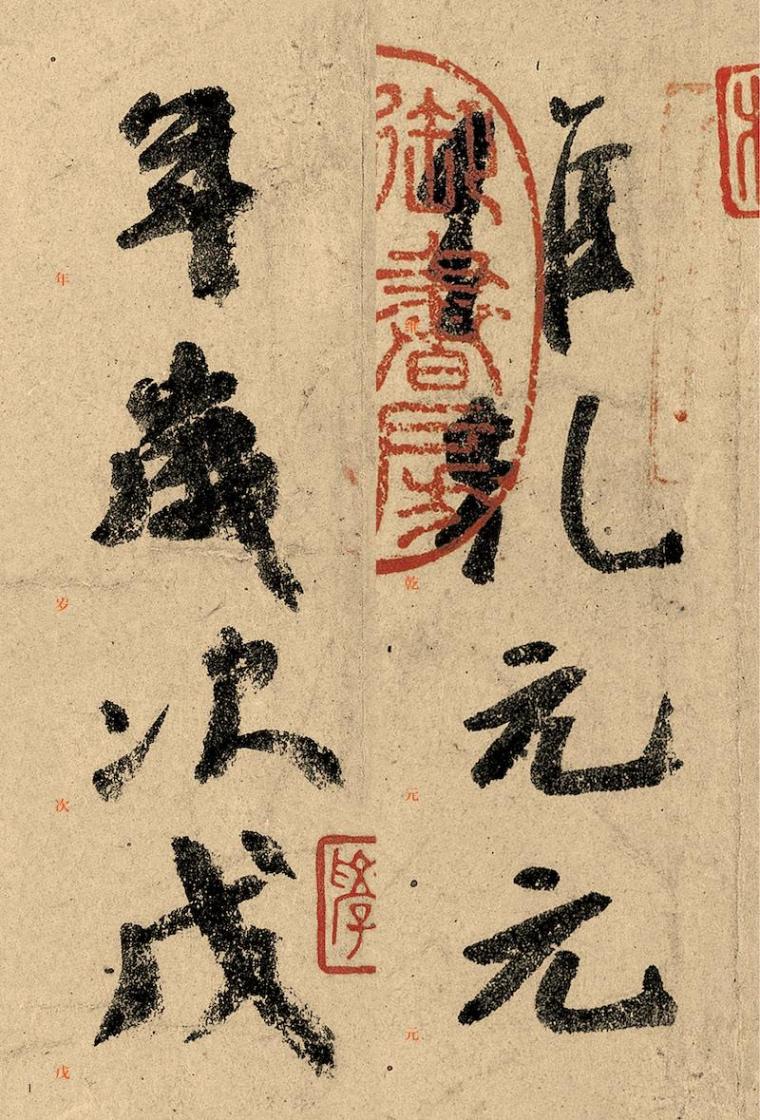 維乾元元
乾
元
元
年歲次戊
年
岁
次
戊
御書房
學